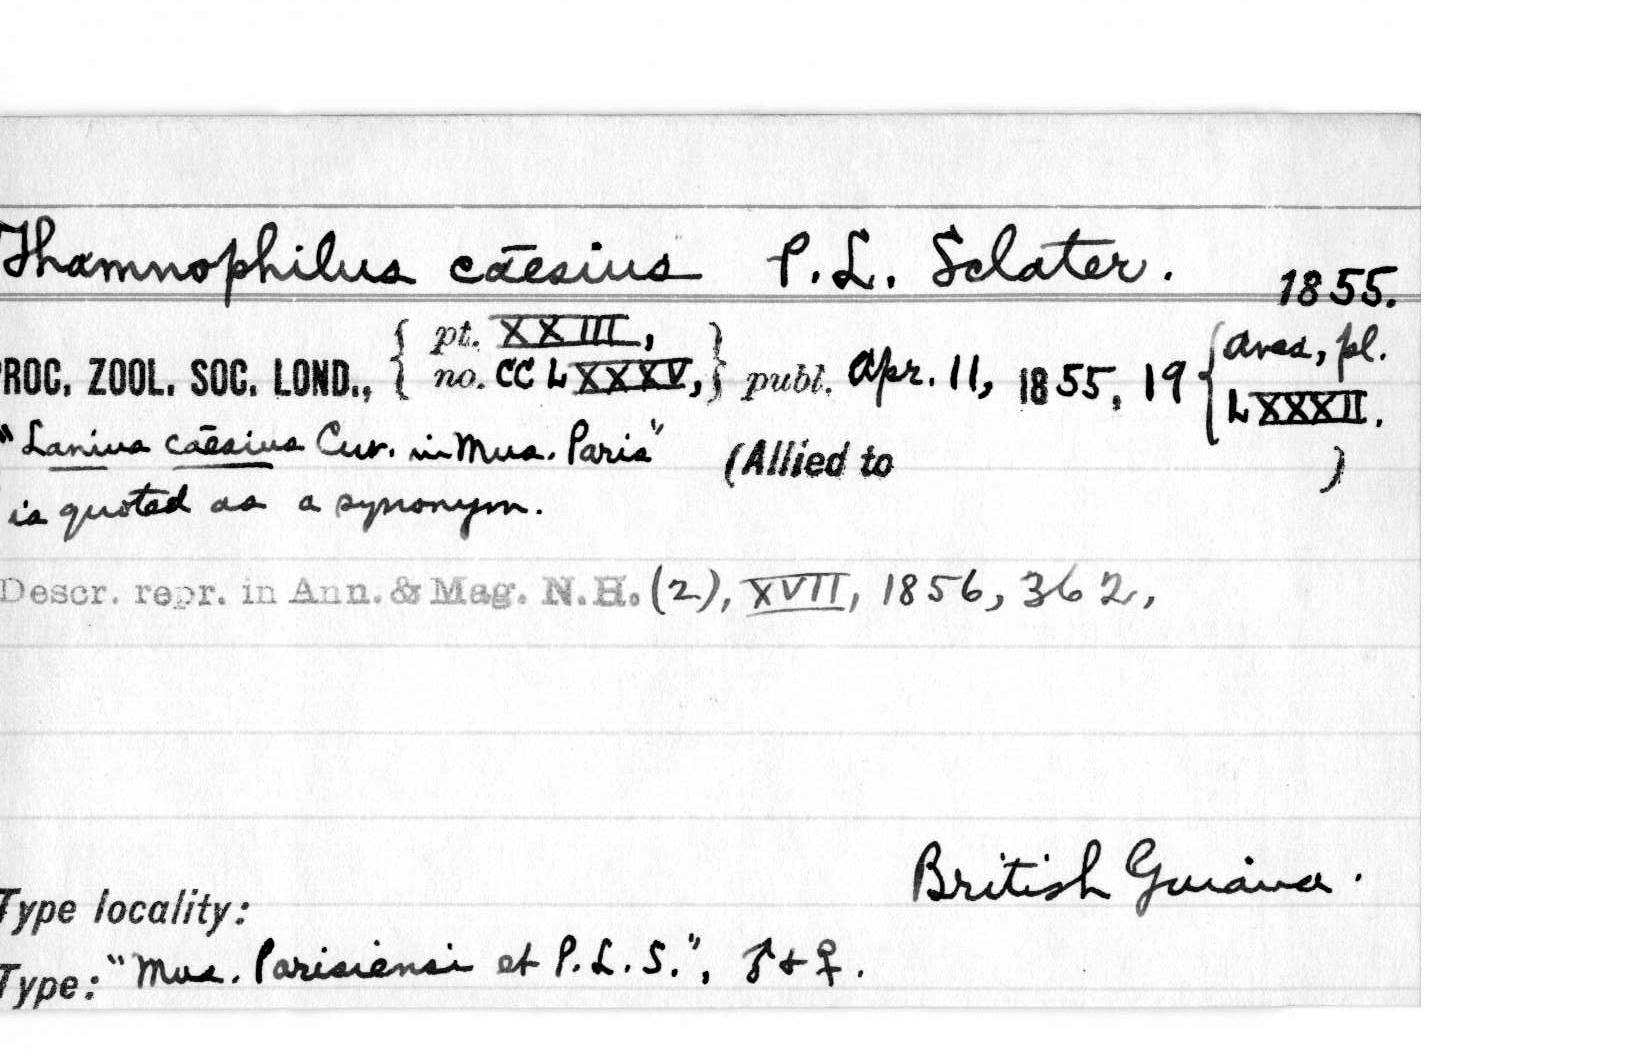 Thamnophilus cāesius P. L. Sclater. 1855.
PROC. ZOOL. SOC. LOND., { pt. XXIII, no. CCLXXXV, } publ. Apr. 11, 1855, 19 { Aves, pl. LXXXII.
"Lanius cāesius Cuv. in Mus. Paris" (Allied to )
is quoted as a synonym.
Descr. repr. in Ann. & Mag. N.H. (2), XVII, 1856, 362,
British Guiana.
Type locality:
Type: "Mus. Parisiensi et P. L. S.", ♂ + ♀.